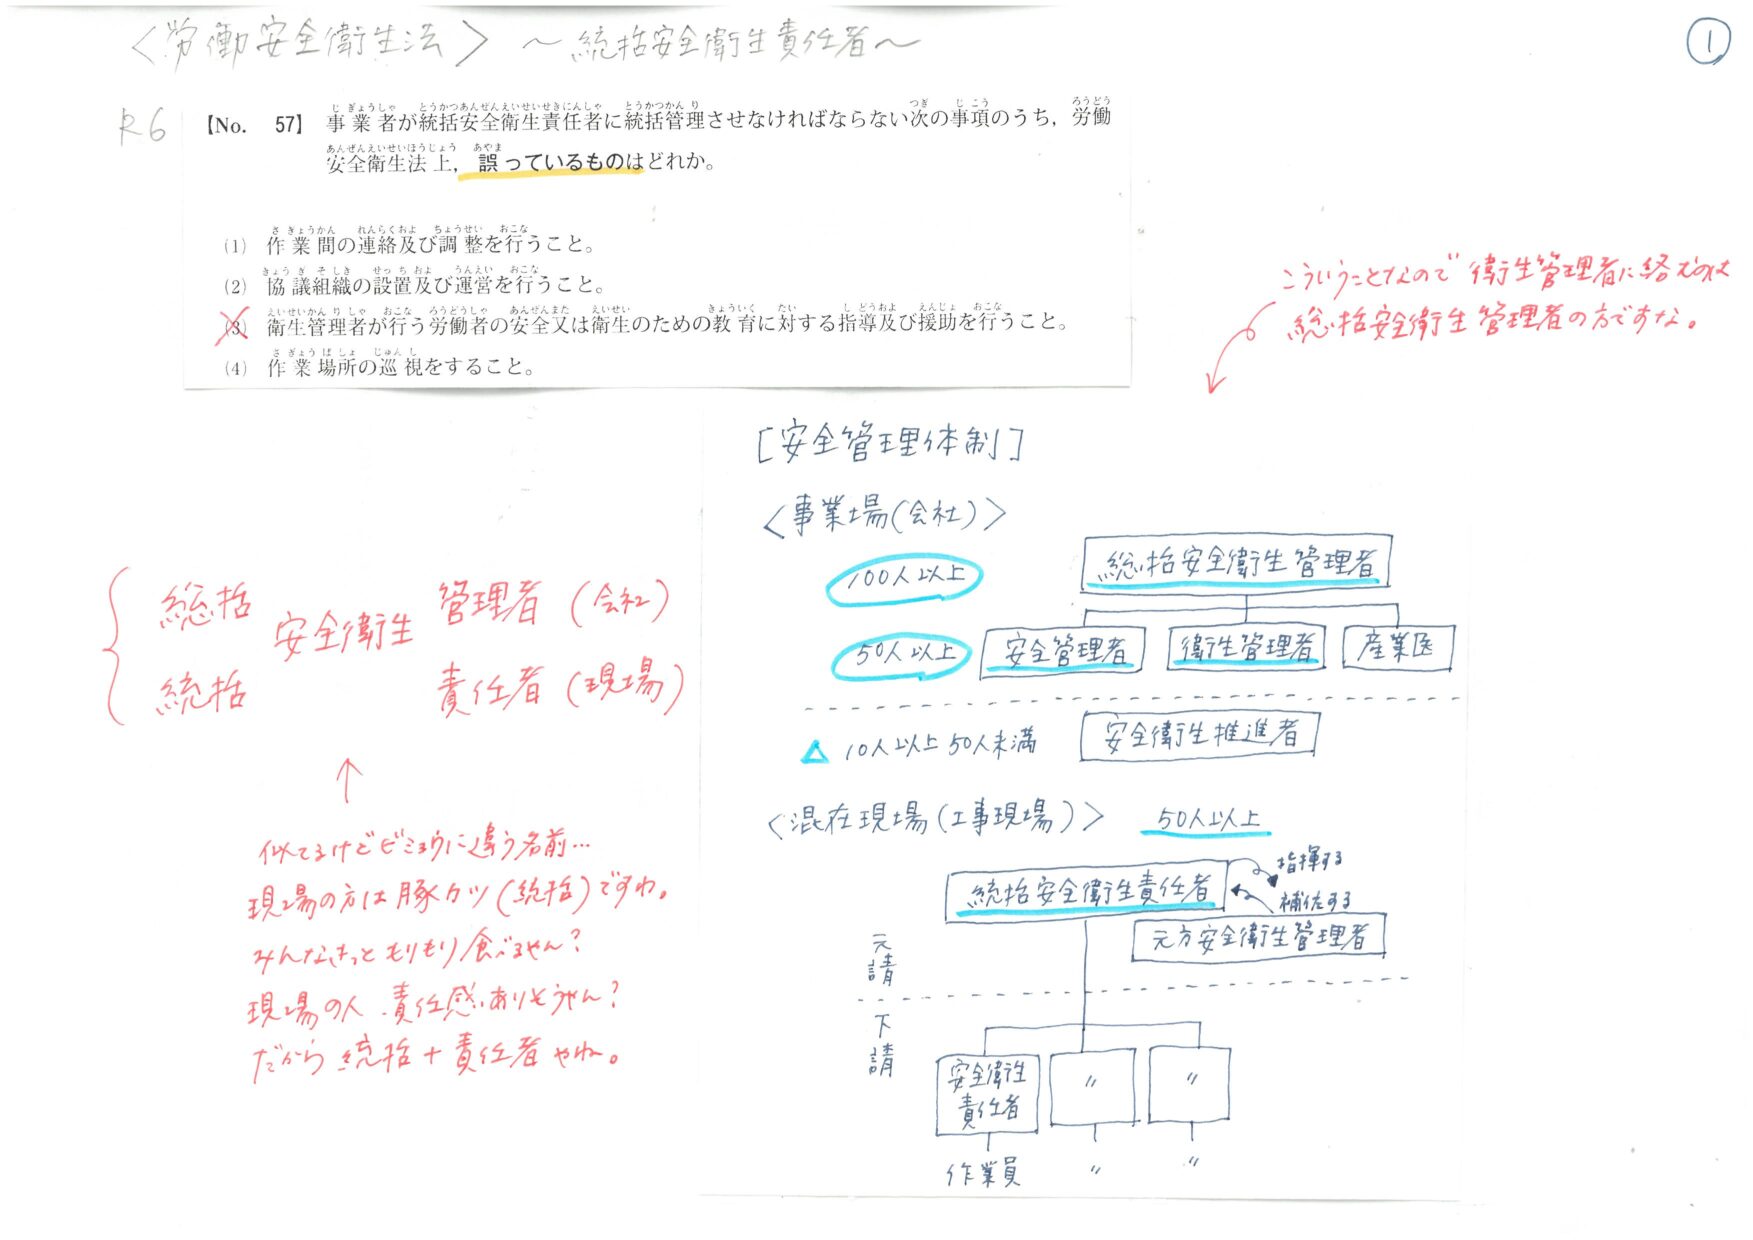 ＜労働安全衛生法＞ ～統括安全衛生責任者～
①
R6
【No. 57】 事業者が統括安全衛生責任者に統括管理させなければならない次の事項のうち，労働
安全衛生法上，誤っているものはどれか。
(1) 作業間の連絡及び調整を行うこと。
(2) 協議組織の設置及び運営を行うこと。
(3) 衛生管理者が行う労働者の安全又は衛生のための教育に対する指導及び援助を行うこと。
(4) 作業場所の巡視をすること。
こういうことなので衛生管理者に絡むのは
総括安全衛生管理者の方ですな。
[安全管理体制]
＜事業場(会社)＞
100人以上
総括安全衛生管理者
50人以上
安全管理者
衛生管理者
産業医
△ 10人以上50人未満
安全衛生推進者
＜混在現場(工事現場)＞ 50人以上
統括安全衛生責任者
指揮する
補佐する
元方安全衛生管理者
元請
下請
安全衛生
責任者
〃
〃
作業員
〃
〃
総括 安全衛生 管理者 (会社)
統括 責任者 (現場)
↑
似てるけどビミョウに違う名前…
現場の方は豚カツ(統括)ですわ。
みんなきっともりもり食べるやん?
現場の人、責任感ありそうやん?
だから統括+責任者やね。